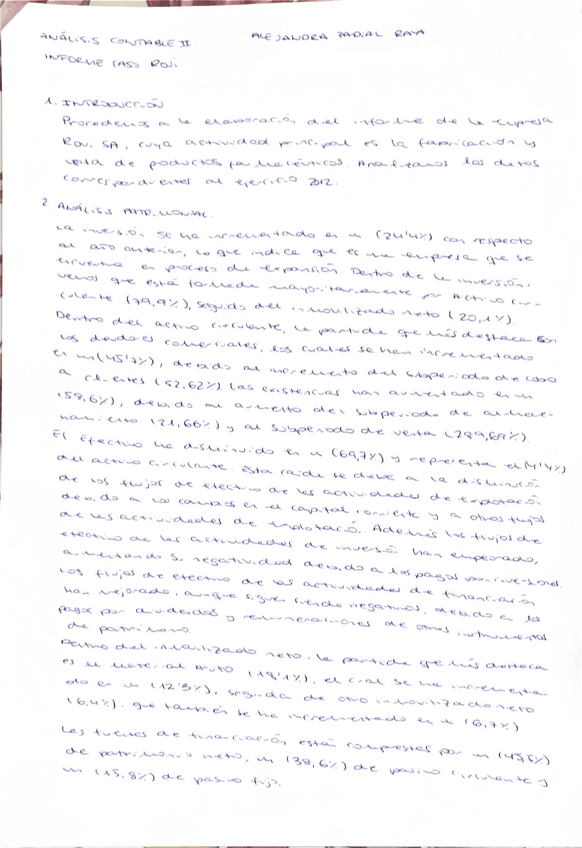 ANÁLISIS CONTABLE II
ALEJANDRA PADIAL RAYA
INFORME CASO ROVI
1. INTRODUCCIÓN
Procedemos a la elaboración del informe de la empresa
Rovi SA, cuya actividad principal es la fabricación y
venta de productos farmacéuticos. Analizamos los datos
correspondientes al ejercicio 2012.
2 ANÁLISIS PATRIMONIAL.
La inversión se ha incrementado en un (24'4%) con respecto
al año anterior, lo que indica que es una empresa que se
encuentra en proceso de expansión. Dentro de la inversión,
vemos que está formada mayoritariamente por Activo cir-
culante (79,9%), seguido del inmovilizado neto (20,1%).
Dentro del activo circulante, la partida que más destaca son
los deudores comerciales, los cuales se han incrementado
en un (45'7%), debido al incremento del subperiodo de cobro
a clientes (52,62%) Las existencias han aumentado en un
(58,6%), debido al aumento del subperiodo de almace-
namiento (21,66%) y al subperiodo de venta (289,69%).
El efectivo ha disminuido en un (69,7%) y representa el (4'4%)
del activo circulante. Esta caída se debe a la disminución
de los flujos de efectivo de las actividades de explotación
debido a los cambios en el capital corriente y a otros flujos
de las actividades de explotación. Además los flujos de
efectivo de las actividades de inversión han empeorado,
aumentando su negatividad debido a los pagos por inversiones.
Los flujos de efectivo de las actividades de financiación
han mejorado, aunque siguen siendo negativos, debido a los
pagos por dividendos y remuneraciones de otros instrumentos
de patrimonio.
Dentro del inmovilizado neto, la partida que más destaca
es el material bruto (18'1%), el cual se ha incrementa
do en un (12'3%), seguida de otro inmovilizado neto
(6,4%), que también se ha incrementado en un (6,7%)
Las fuentes de financiación están compuestas por un (45,5%)
de patrimonio neto, un (38,6%) de pasivo circulante y
un (15,8%) de pasivo fijo.